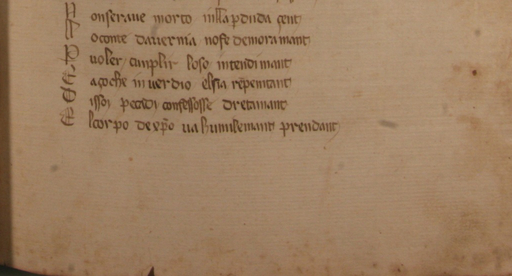 N onserave morto in lla p duda gent
T ocome davernia nose demoramant
P voler cunplir loso intendimant
E açoche in verdio elsia repentant
E issoi pecedi confessosse dretamant
E lcorpo de xpo va humilemant prendant